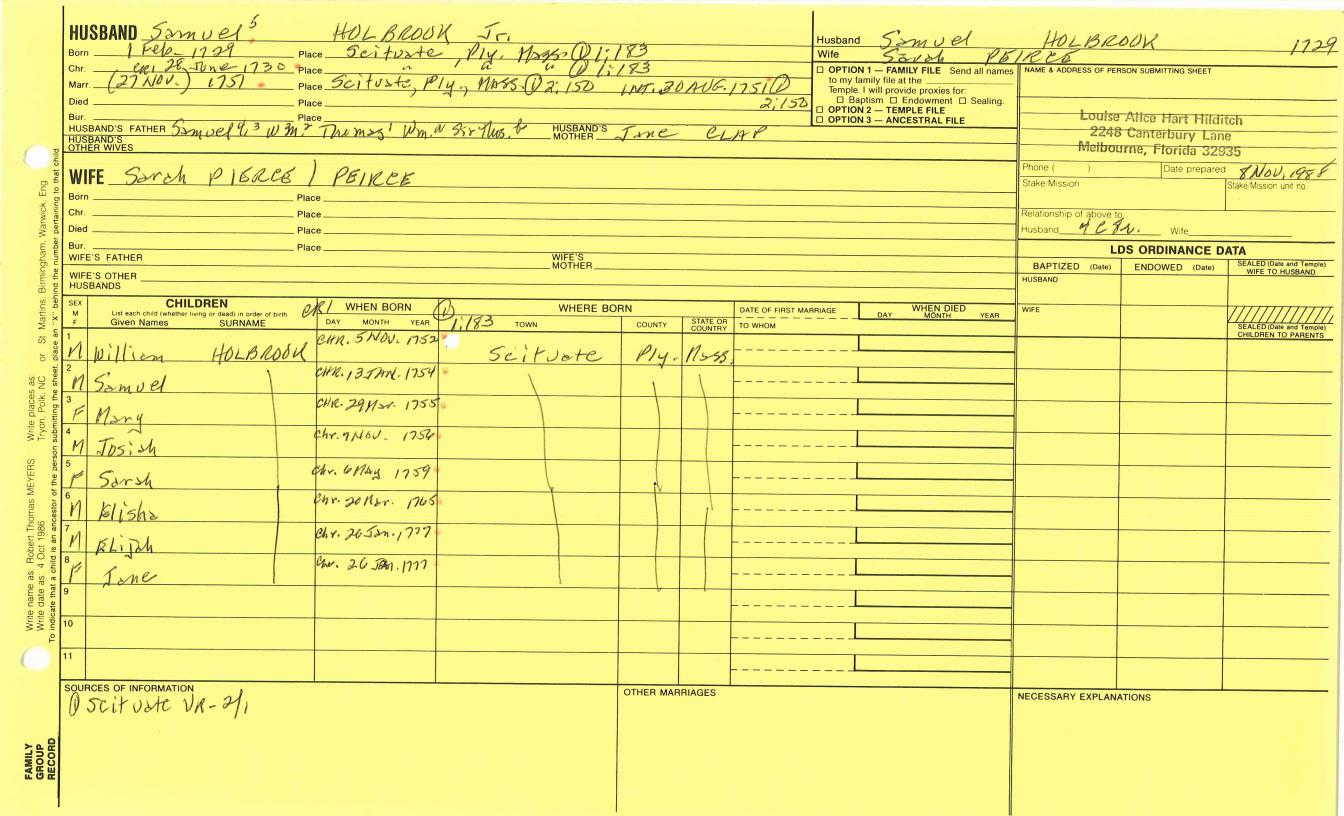 HUSBAND Samuel 5 HOLBROOK Jr.
Born 1 Feb. 1729 Place Scituate, Ply. Mass. ① 1:183
Chr. CR1 28 June 1730 Place " " " ① 1:183
Marr. (27 NOV.) 1751 Place Scituate, Ply., MASS. ① 2:150 INT. 30 AUG. 1751 ①
Died Place 2:150
Bur. Place
HUSBAND'S FATHER Samuel 4, 3 Wm 2 Thomas 1 Wm. HUSBAND'S MOTHER Jane CLAP
HUSBAND'S OTHER WIVES
WIFE Sarah PIERCE / PEIRCE
Born Place
Chr. Place
Died Place
Bur. Place
WIFE'S FATHER WIFE'S MOTHER
WIFE'S OTHER HUSBANDS
Husband Samuel HOLBROOK 1729
Wife Sarah PEIRCE
☐ OPTION 1 — FAMILY FILE Send all names
to my family file at the
Temple. I will provide proxies for:
☐ Baptism ☐ Endowment ☐ Sealing.
☐ OPTION 2 — TEMPLE FILE
☐ OPTION 3 — ANCESTRAL FILE
NAME & ADDRESS OF PERSON SUBMITTING SHEET
Louise Alice Hart Hilditch
2248 Canterbury Lane
Melbourne, Florida 32935
Phone ( ) Date prepared 8 Nov. 1988
Stake/Mission Stake/Mission unit no.
Relationship of above to
Husband Wife
LDS ORDINANCE DATA
BAPTIZED (Date) ENDOWED (Date) SEALED (Date and Temple) WIFE TO HUSBAND
HUSBAND
WIFE
SEALED (Date and Temple) CHILDREN TO PARENTS
SEX M F
CHILDREN
List each child (whether living or dead) in order of birth
Given Names SURNAME
CR1 WHEN BORN ① 1:183
DAY MONTH YEAR
WHERE BORN
TOWN COUNTY STATE OR COUNTRY
DATE OF FIRST MARRIAGE
TO WHOM
WHEN DIED
DAY MONTH YEAR
1 M William HOLBROOK CHR. 5 NOV. 1752 Scituate Ply. Mass.
2 M Samuel CHR. 13 JAN. 1754
3 F Mary CHR. 29 Mar. 1755
4 M Josiah Chr. 7 Nov. 1756
5 F Sarah Chr. 6 May 1759
6 M Elisha Chr. 20 Mar. 1765
7 M Elijah Chr. 26 Jan. 1777
8 F Jane Chr. 26 Jan. 1777
9
10
11
SOURCES OF INFORMATION
① Scituate VR-2/1
OTHER MARRIAGES
NECESSARY EXPLANATIONS
Write name as: Robert Thomas MEYERS Write places as: Tryon, Polk, NC or St. Martins, Birmingham, Warwick, Eng
Write date as: 4 Oct 1986
To indicate that a child is an ancestor of the person submitting the sheet, place an "X" behind the number pertaining to that child
FAMILY
GROUP
RECORD